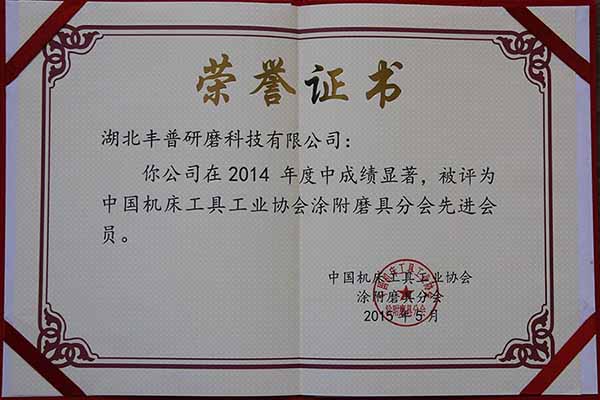 荣誉证书
湖北丰普研磨科技有限公司：
你公司在2014 年度中成绩显著，被评为
中国机床工具工业协会涂附磨具分会先进会
员。
中国机床工具工业协会
涂附磨具分会
2015年5月
中国机床工具工业协会
涂附磨具分会